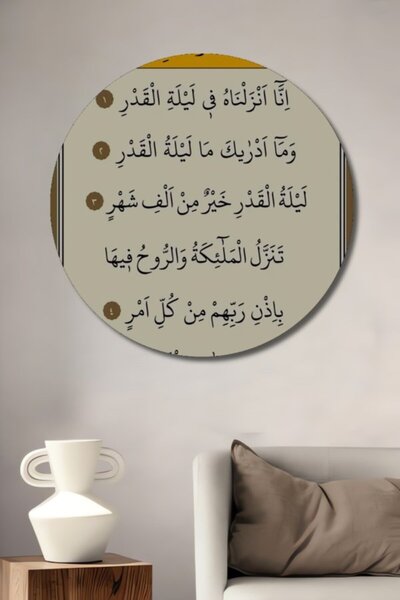 اِنَّٓا اَنْزَلْنَاهُ ف۪ي لَيْلَةِ الْقَدْرِ ١
وَمَٓا اَدْرٰيكَ مَا لَيْلَةُ الْقَدْرِ ٢
لَيْلَةُ الْقَدْرِ خَيْرٌ مِنْ اَلْفِ شَهْرٍ ٣
تَنَزَّلُ الْمَلٰٓئِكَةُ وَالرُّوحُ ف۪يهَا
بِاِذْنِ رَبِّهِمْ مِنْ كُلِّ اَمْرٍ ٤